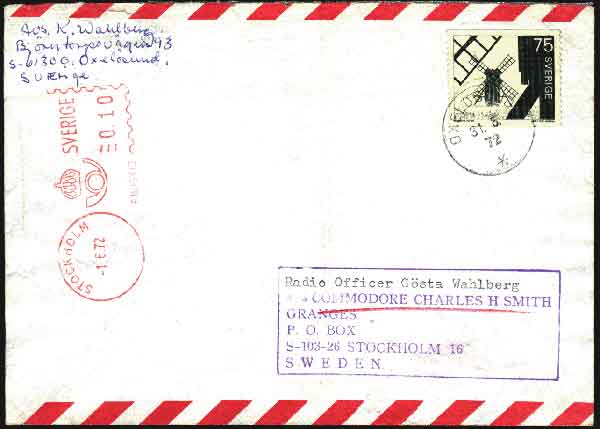 Avs. K. Wahlberg
Björntorpsvägen 93
S-61300. Oxelösund.
SVERIGE
SVERIGE
0.10
STOCKHOLM
-1.6.72
75
SVERIGE
OXELÖSUND
31.5
72
Radio Officer Gösta Wahlberg
COMMODORE CHARLES H SMITH
GRANGES
P. O. BOX
S-103-26 STOCKHOLM 16
SWEDEN